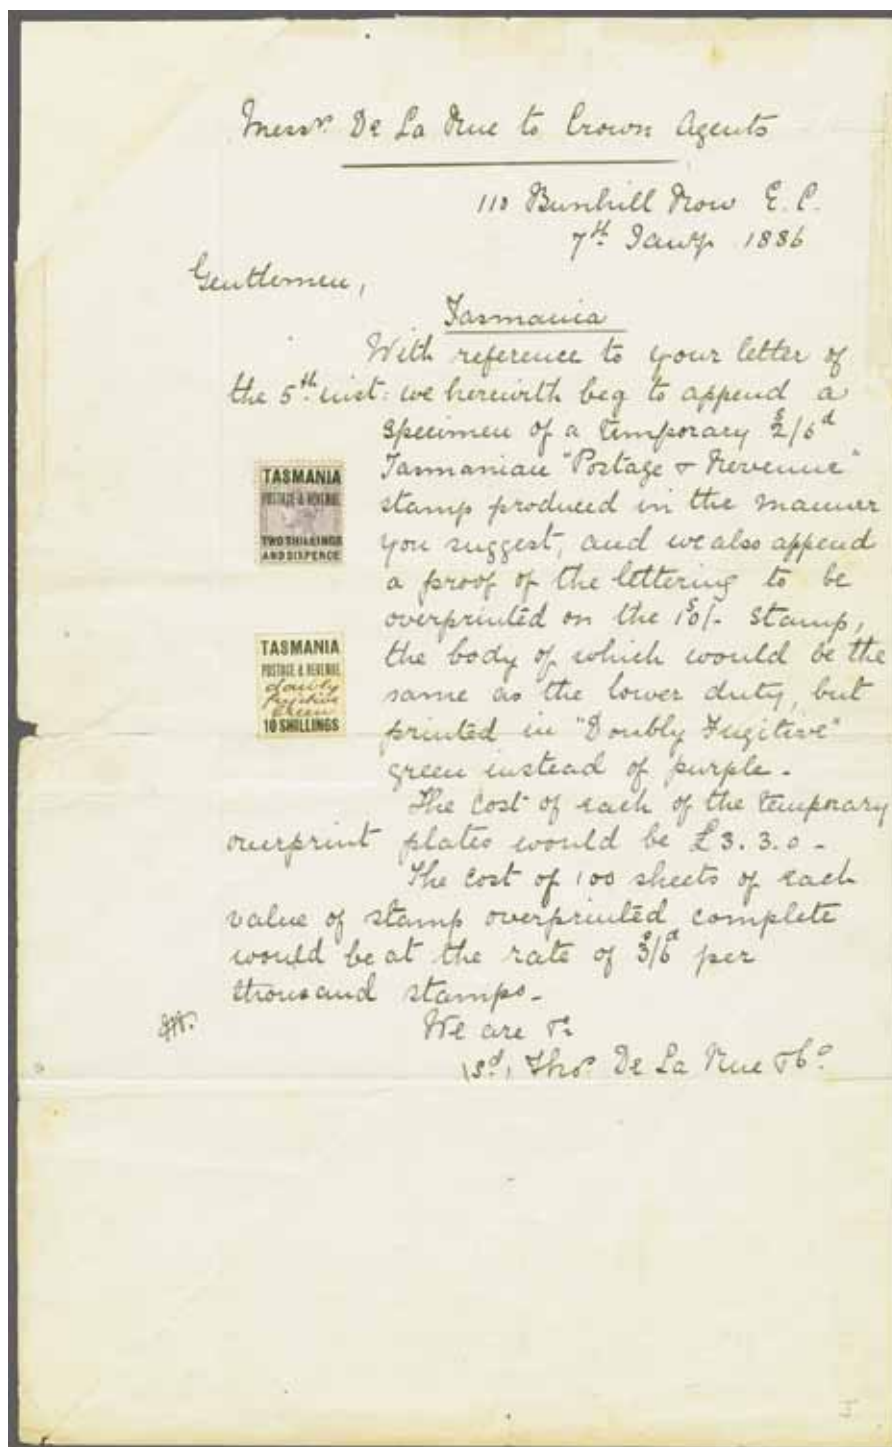 Messrs. De La Rue to Crown Agents
110 Bunhill Row E.C.
7th Jany. 1886
Gentlemen,
Tasmania
With reference to your letter of
the 5th inst: we herewith beg to append a
specimen of a temporary 2s/6d
Tasmanian "Postage & Revenue"
stamp produced in the manner
you suggest, and we also append
a proof of the lettering to be
overprinted on the 10s/- stamp,
the body of which would be the
same as the lower duty, but
printed in "Doubly Fugitive"
green instead of purple.
The cost of each of the temporary
overprint plates would be £3.3.0.
The cost of 100 sheets of each
value of stamp overprinted complete
would be at the rate of 3s/6d per
thousand stamps.
We are &c
(sd) Thos. De La Rue & Co.
TASMANIA
POSTAGE & REVENUE
TWO SHILLINGS
AND SIXPENCE
TASMANIA
POSTAGE & REVENUE
doubly
fugitive
green
10 SHILLINGS